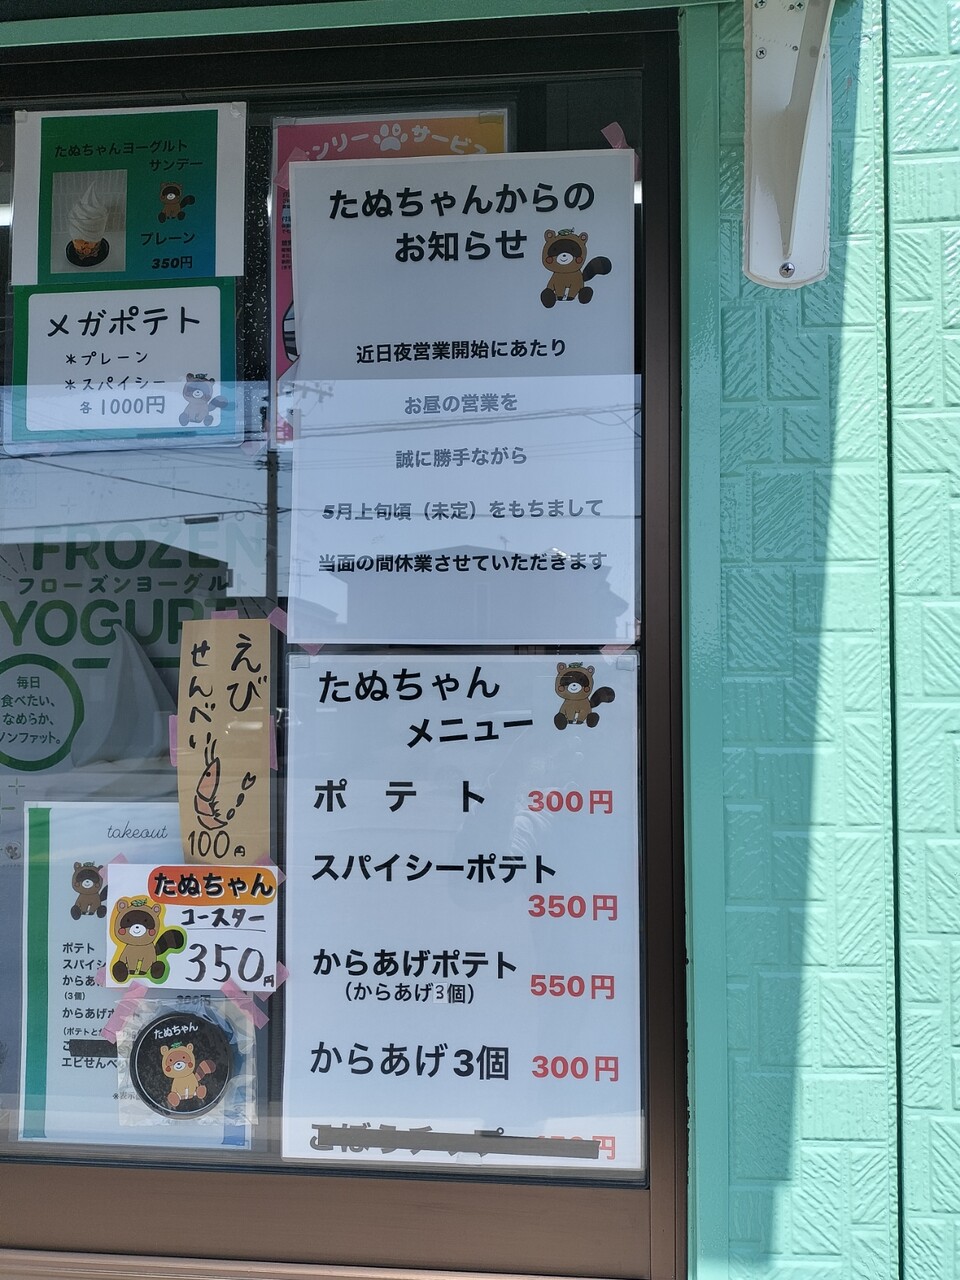 たぬちゃんヨーグルト
サンデー
プレーン
350円
メガポテト
*プレーン
*スパイシー
各1000円
ンリー サービス
たぬちゃんからの
お知らせ
近日夜営業開始にあたり
お昼の営業を
誠に勝手ながら
5月上旬頃(未定)をもちまして
当面の間休業させていただきます
FROZEN
フローズンヨーグル
YOGURT
毎日
食べたい、
なめらか、
ノンファット。
えび
せんべい
100円
takeout
ポテト
スパイシ
からあ
(3個)
からあげポ
(ポテトとか
エビせんべ
たぬちゃん
コースター
350円
たぬちゃん
たぬちゃん
メニュー
ポテト 300円
スパイシーポテト
350円
からあげポテト 550円
(からあげ3個)
からあげ3個 300円